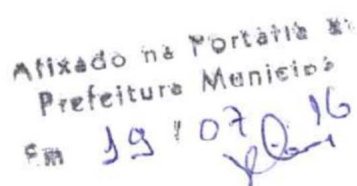 Afixado na Portaria
Prefeitura Municipa
Em 19 / 07 16